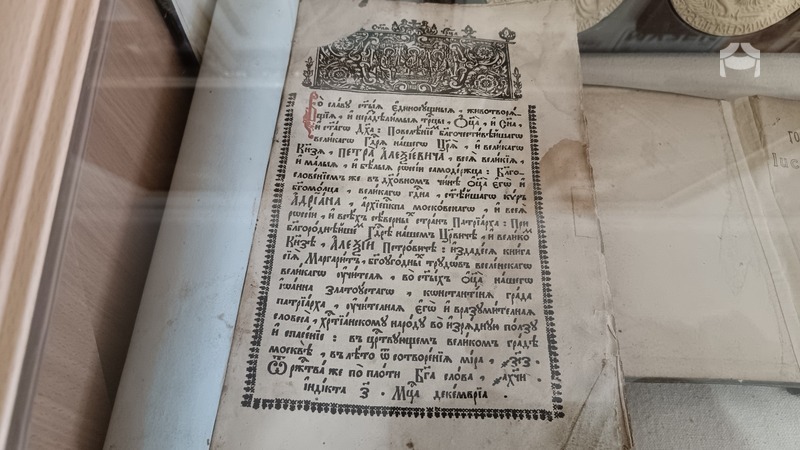 Во славу ст҃ыя единосущныя, животворя-
щїя, и нераздѣлимыя трⷪ҇цы, Ѻц҃а, и Сн҃а,
и ст҃агѡ Дх҃а: Повелѣнїемъ благочестивѣйшагѡ
великагѡ Гдⷭ҇ря нашегѡ Цр҃я, и великагѡ
Кнѕ҃я, ПЕТРА АЛЕѮІЕВИЧА, всея великїя,
и малыя, и бѣлыя рѡссїи самодержца: Благо-
словенїемъ же въ дх҃овномъ чинѣ Ѻц҃а егѡ и
бг҃омольца, великагѡ гдⷭ҇на, ст҃ѣйшагѡ кѵръ
АДРІАНА, архїепⷭ҇кпа московскагѡ, и всея
рѡссїи, и всѣхъ сѣверныхъ странъ Патрїарха: При
благороднѣйшемъ Гдⷭ҇рѣ нашемъ Црⷭ҇вичѣ, и великомъ
Кнѕ҃ѣ, АЛЕѮІИ Петровичѣ: издадеся книга
сїя Маргаритъ, бг҃оугодныхъ трудѡвъ вселенскагѡ
великагѡ ᲂучителя, во ст҃ыхъ Ѻц҃а нашегѡ
Іѡанна Златоустагѡ, константїня града
патрїарха, ᲂучителная егѡ и вразумителная
словеса, хрⷭ҇тїанскому народу во изрядную ползу
и спасенїе: въ црⷭ҇твующемъ великомъ градѣ
москвѣ, въ лѣто ѿ сотворенїя мїра, ҂зсз.
Ѿ ржⷭ҇тва же по плоти Бг҃а слова, ҂ахчи
індїкта з҃. Мцⷭ҇а декемврїа.